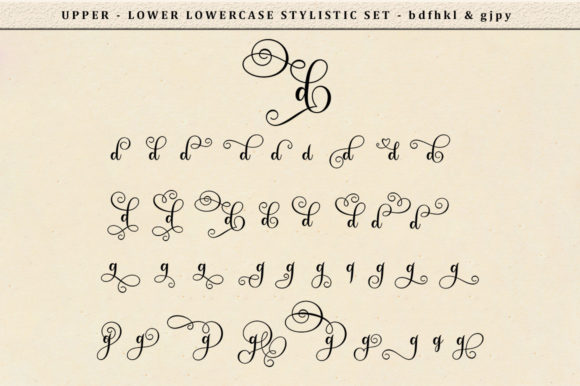 UPPER - LOWER LOWERCASE STYLISTIC SET - bdfhkl & gjpy
d
d d d d d d d d d
d d d d d d d d
g g g g g g g g g g
g g g g g g g g g